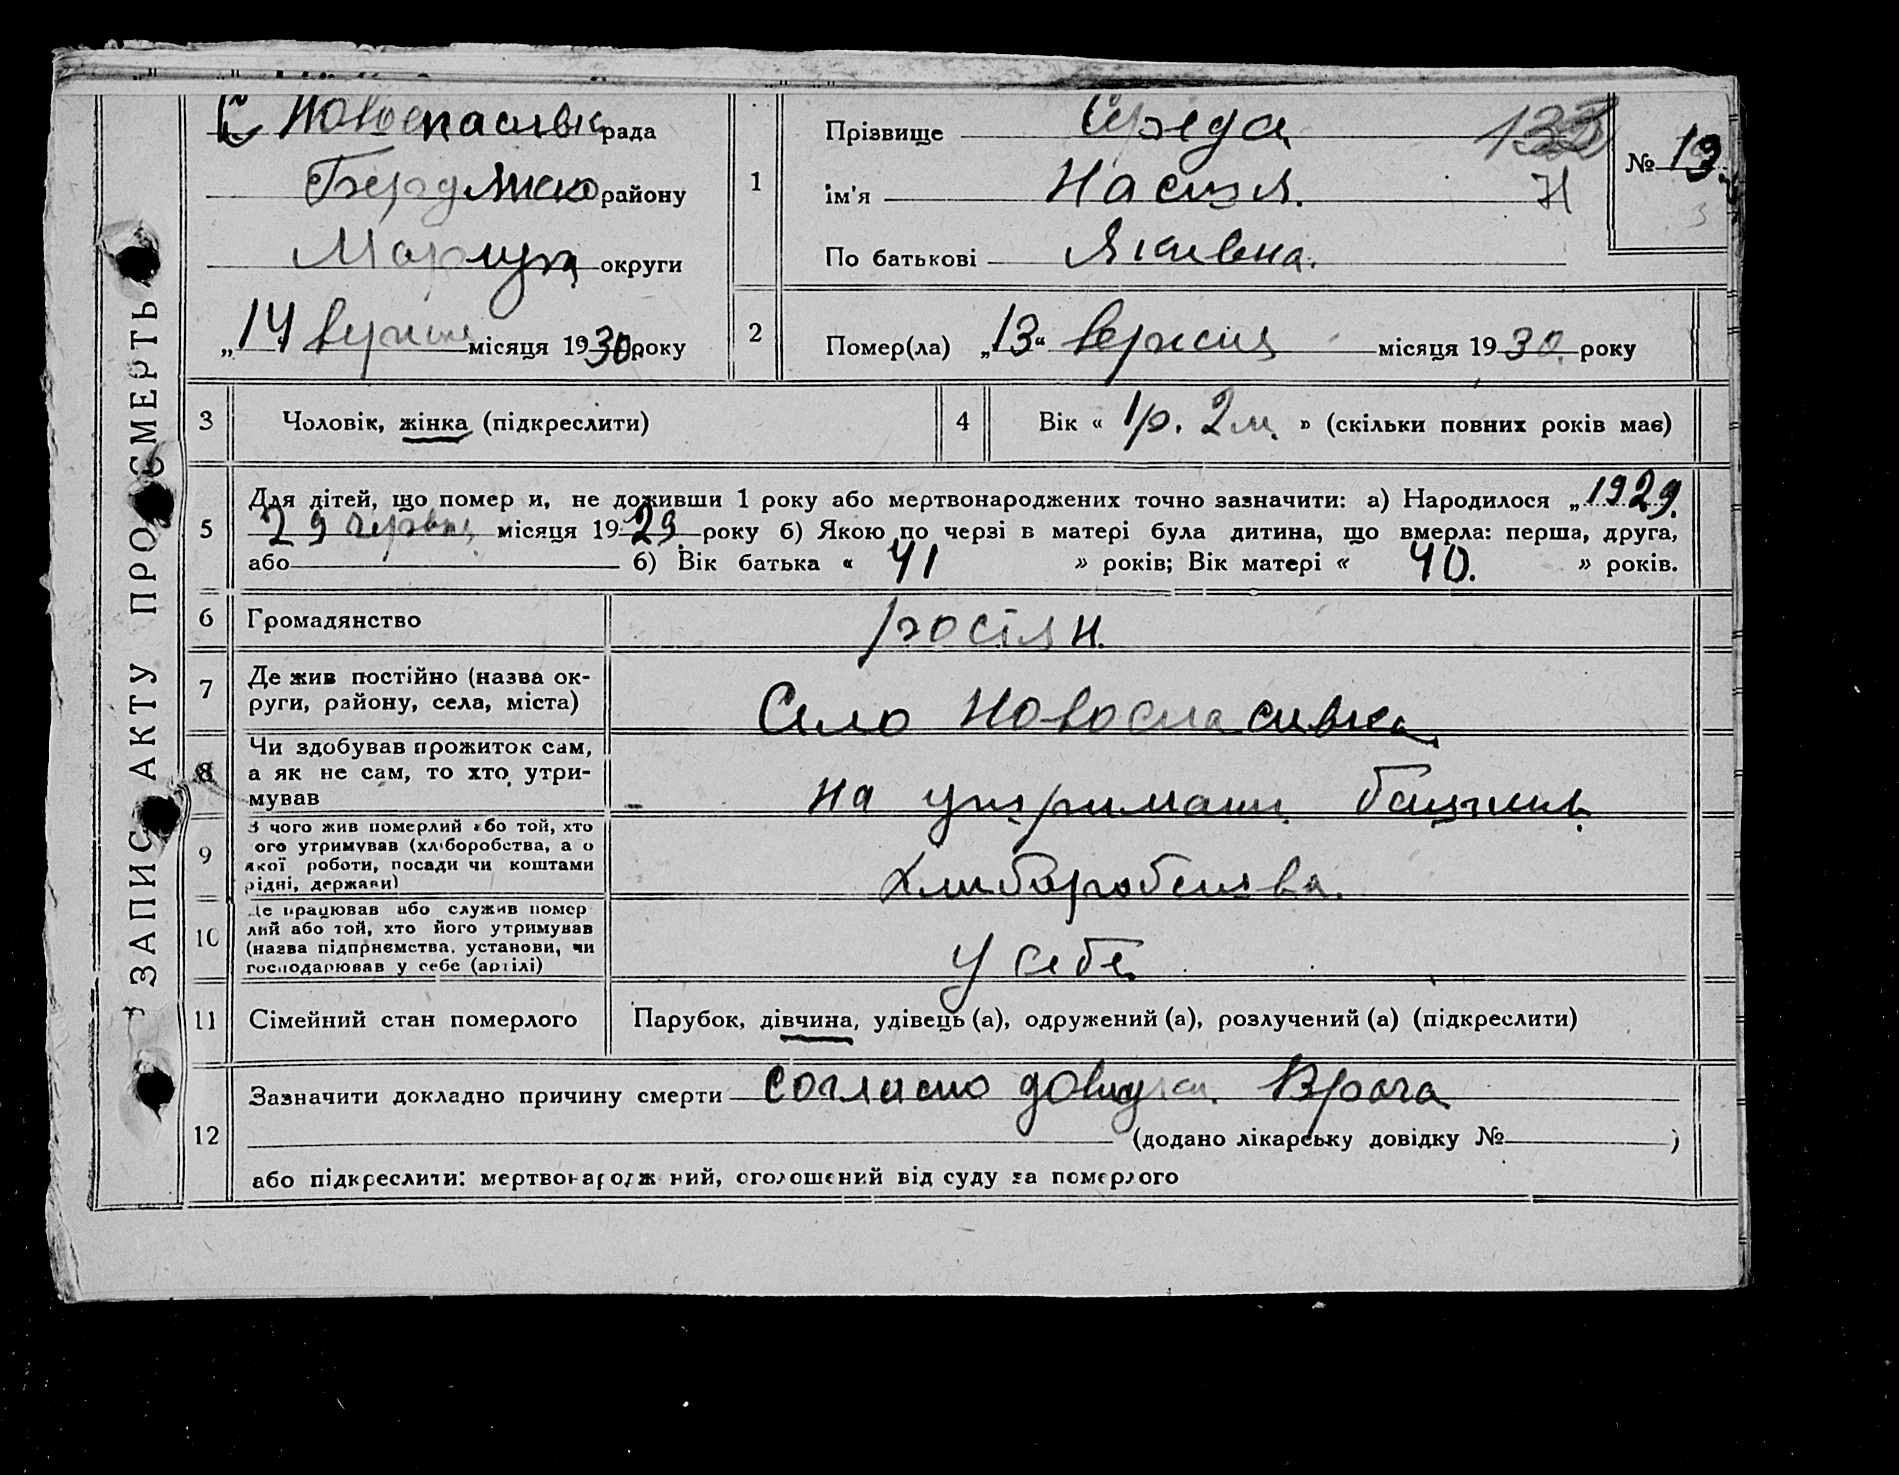 ЗАПИС АКТУ ПРО СМЕРТЬ
с Новоспасівк рада
Бердянско району
Маріуп округи
„14 вересня місяця 1930 року
1
Прізвище Середа
ім'я Настя.
По батькові Яківна.
133
Н
№ 19
2
Помер(ла) „13“ вересня місяця 1930. року
3 Чоловік, жінка (підкреслити)
4 Вік « 1р. 2 м. » (скільки повних років має)
5 Для дітей, що помер и, не доживши 1 року або мертвонароджених точно зазначити: а) Народилося „1929.
29 червня місяця 1929. року б) Якою по черзі в матері була дитина, що вмерла: перша, друга,
або б) Вік батька « 41 » років; Вік матері « 40. » років.
6 Громадянство росіян.
7 Де жив постійно (назва ок-
руги, району, села, міста)
Село Новоспасивка
8 Чи здобував прожиток сам,
а як не сам, то хто утри-
мував
на утримани батькив
9 З чого жив померлий або той, хто
ого утримував (хліборобства, а о
якої роботи, посади чи коштами
рідні, держави)
хлиборобства.
10 Де працював або служив помер
лий або той, хто його утримував
(назва підприємства, установи, чи
господарював у себе (артілі)
у себе
11 Сімейний стан померлого Парубок, дівчина, удівець (а), одружений (а), розлучений (а) (підкреслити)
12 Зазначити докладно причину смерти согласно довидки Врача
(додано лікарську довідку № )
або підкреслити: мертвонародж ний, оголошений від суду за померлого